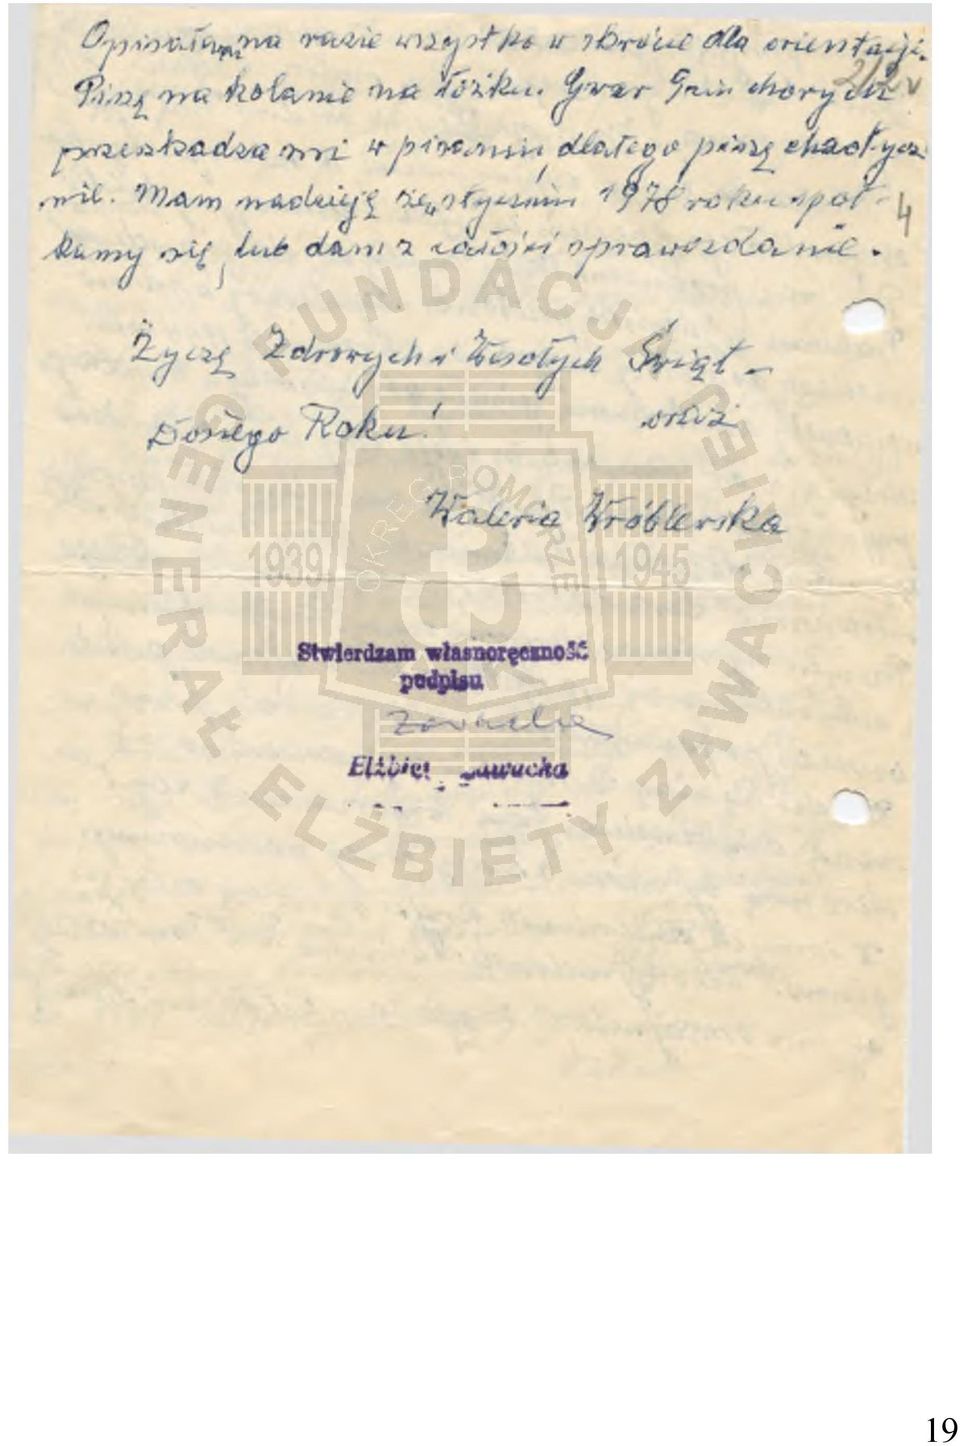 Opisałam na razie wszystko w skrócie dla orientacji.
Piszę na kolanie na łóżku. Gwar chorych
przeszkadza mi w pisaniu, dlatego piszę chaotycz
nie. Mam nadzieję że w styczniu 1978 roku spot-
4
kamy się, lub dam z całości sprawozdanie.
Życzę Zdrowych i Wesołych Świąt -
oraz
Dosiego Roku!
Waleria Wróblewska
Stwierdzam własnoręczność
podpisu
Zawacka
Elżbiet Zawacka
FUNDACJA
GENERAŁ ELŻBIETY ZAWACKIEJ
OKRĘG POMORZE
1939
1945
19